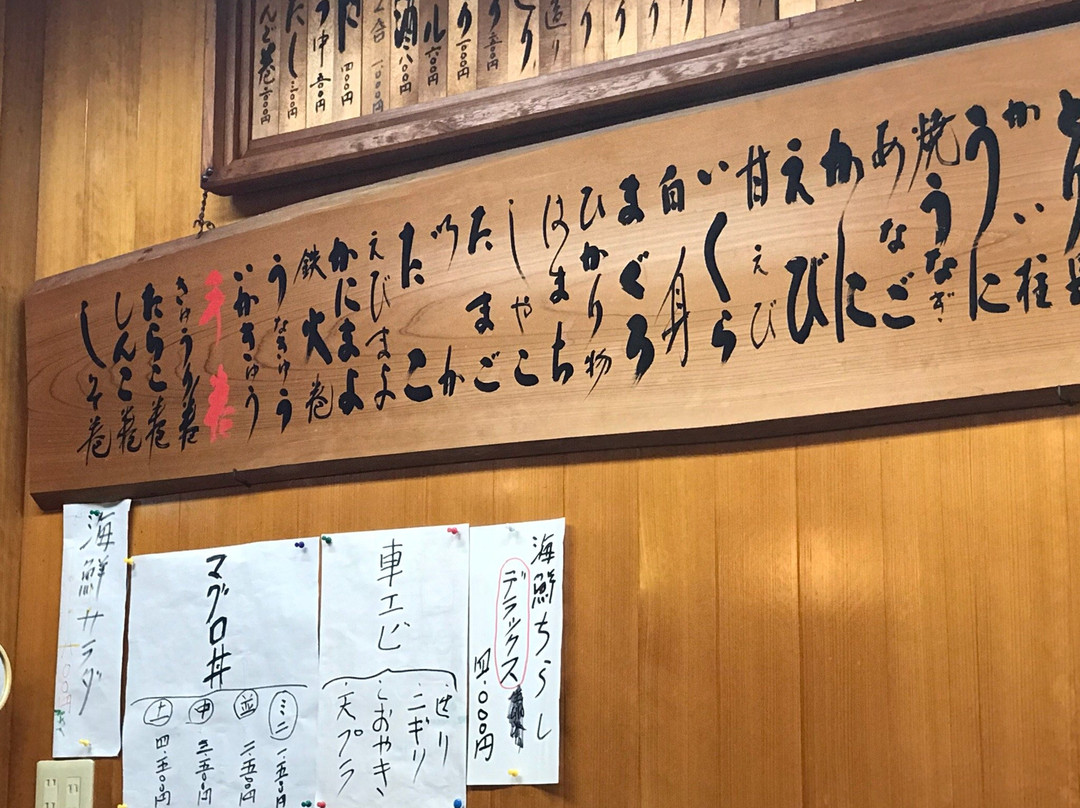 造り
酒 八〇〇円
ル 六〇〇円
四〇〇円
中 五〇〇円
たし 三〇〇円
かい柱
うに
焼うなぎ
あなご
かに
えび
甘えび
いくら
白身
まぐろ
ひかり物
はまち
しゃこ
たまご
いか
たこ
えびまよ
かにまよ
鉄火巻
うなきゅう
いかきゅう
手巻
きゅうり巻
たらこ巻
しんこ巻
しそ巻
海鮮ちらし
デラックス
四.〇〇〇円
車エビ
・ニギリ
・しおやき
・天プラ
マグロ丼
ミニ 一.五〇〇円
並 二.五〇〇円
中 三.五〇〇円
上 四.五〇〇円
海鮮サラダ